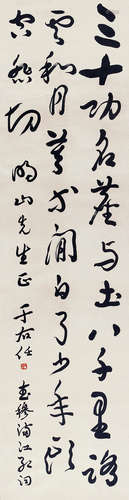 三十功名塵与土八千里路
雲和月莫等閒白了少年頭
空悲切 明山先生正 于右任
武穆滿江紅詞